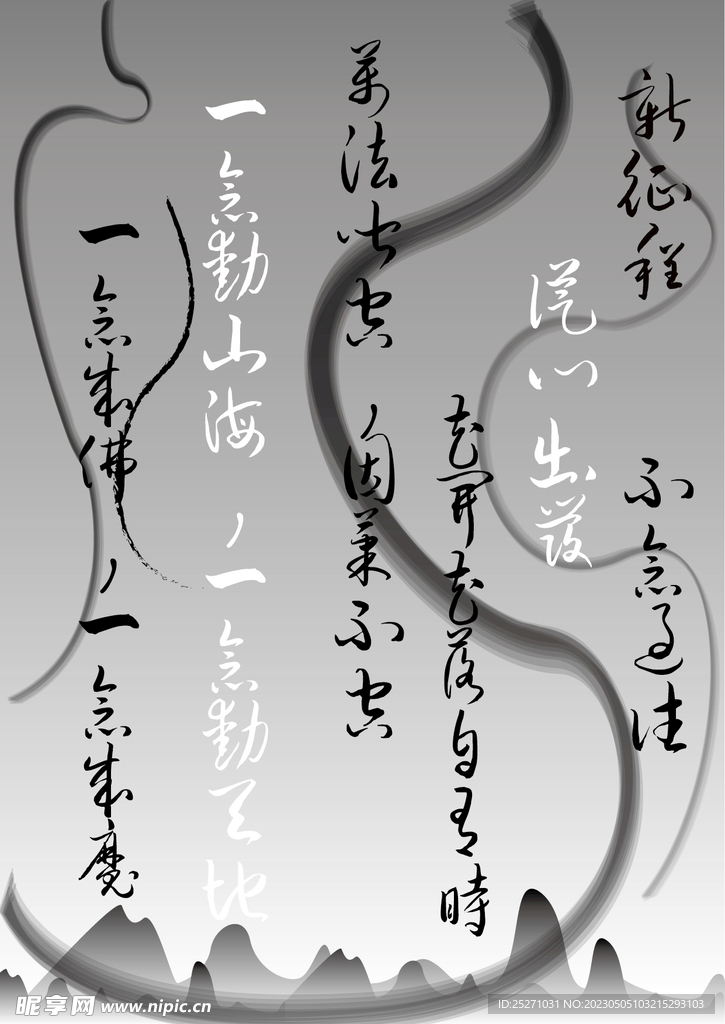 新征程
不念过往
从心出发
花开花落自有时
万法皆空
因果不空
一念动山海，一念动天地
一念成佛，一念成魔
昵享网 www.nipic.cn
ID:25271031 NO:20230505103215293103